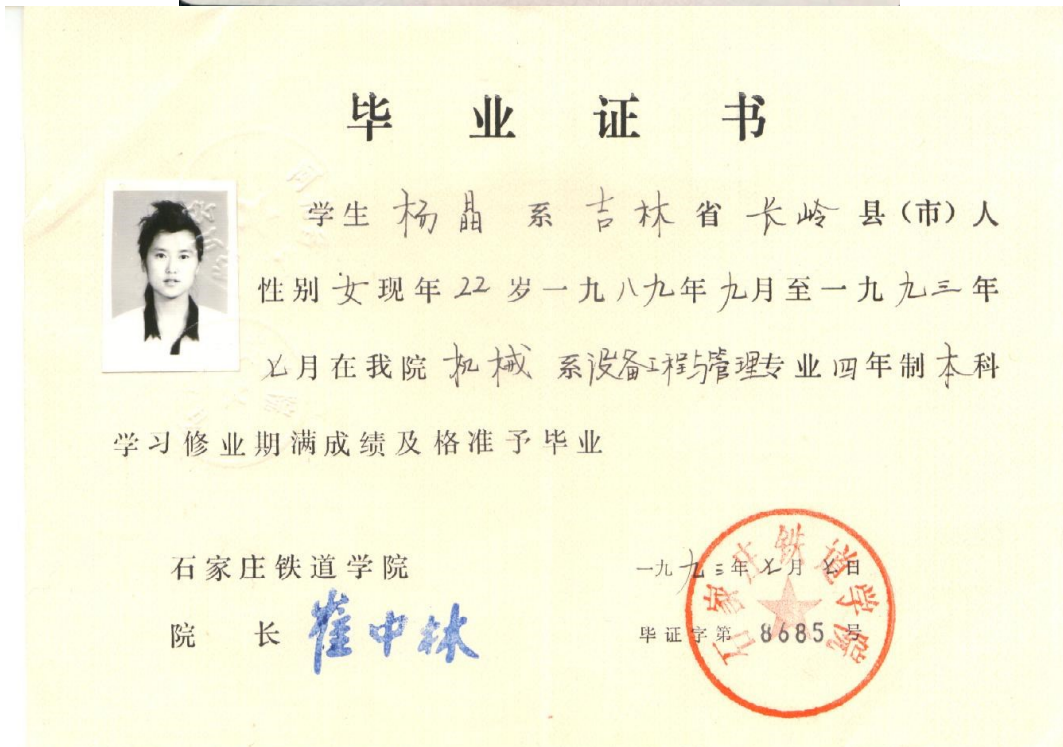 毕业证书
学生 杨晶 系 吉林 省 长岭 县(市)人
性别女现年22岁一九八九年九月至一九九三年
七月在我院 机械 系设备工程与管理专业四年制本科
学习修业期满成绩及格准予毕业
石家庄铁道学院
院 长 崔中林
一九九三年七月七日
毕证字第 8685 号
石家庄铁道学院